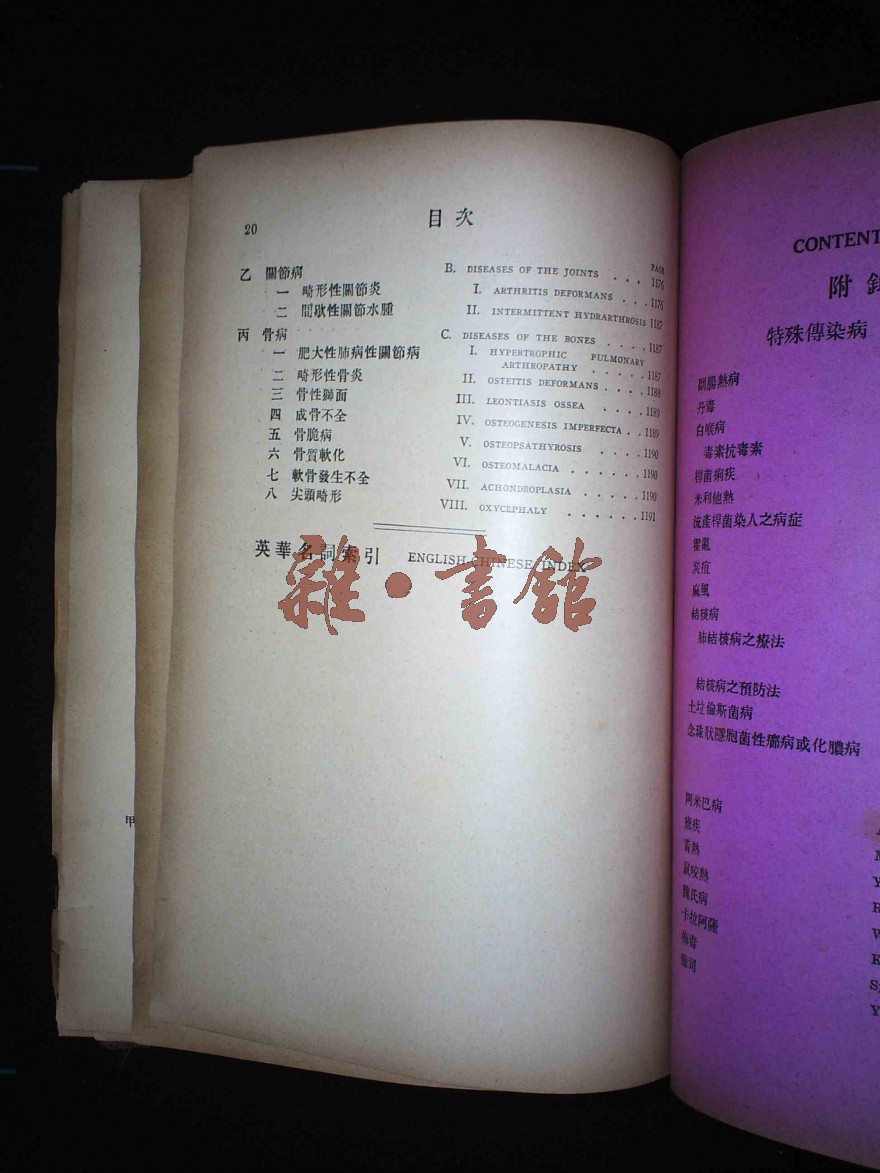 20
目次
PAGE
乙 關節病 B. DISEASES OF THE JOINTS . . . 1176
一 畸形性關節炎 I. ARTHRITIS DEFORMANS . . . 1176
二 間歇性關節水腫 II. INTERMITTENT HYDRARTHROSIS 1187
丙 骨病 C. DISEASES OF THE BONES . . . . 1187
一 肥大性肺病性關節病 I. HYPERTROPHIC PULMONARY
ARTHROPATHY . . . . . 1187
二 畸形性骨炎 II. OSTEITIS DEFORMANS . . . . 1188
三 骨性獅面 III. LEONTIASIS OSSEA . . . . 1189
四 成骨不全 IV. OSTEOGENESIS IMPERFECTA . . 1189
五 骨脆病 V. OSTEOPSATHYROSIS . . . . 1190
六 骨質軟化 VI. OSTEOMALACIA . . . . . . 1190
七 軟骨發生不全 VII. ACHONDROPLASIA . . . . . 1190
八 尖頭畸形 VIII. OXYCEPHALY . . . . . 1191
英華名詞索引 ENGLISH-CHINESE INDEX
雜·書館
甲
CONTENT
附
特殊傳染病
副腸熱病
丹毒
白喉病
毒素抗毒素
桿菌痢疾
米利他熱
流產桿菌染人之病症
霍亂
炭疽
麻風
結核病
肺結核病之療法
結核病之預防法
土拉倫斯菌病
念珠狀隱胞菌性瘤病或化膿病
阿米巴病
瘧疾
黃熱
鼠咬熱
魏氏病
卡拉阿薩
梅毒
M
Y
R
W
K
S
Y